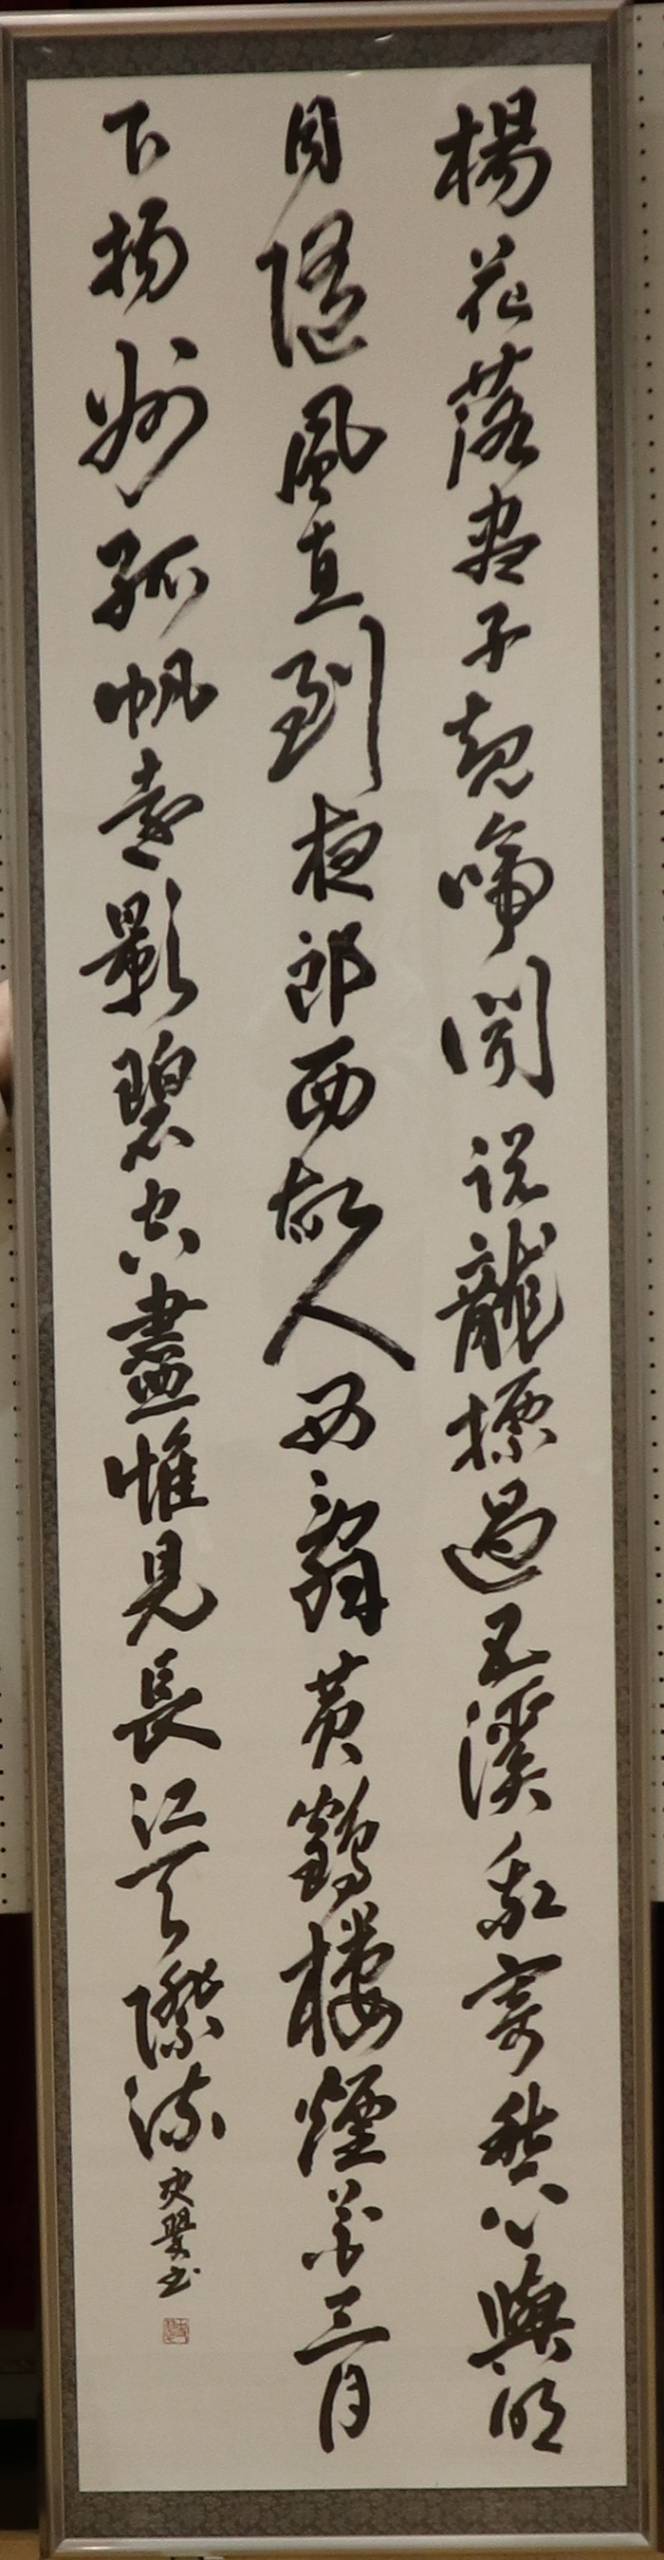 楊花落盡子規啼聞說龍標過五溪我寄愁心與明
月隨風直到夜郎西故人西辭黃鶴樓煙花三月
下揚州孤帆遠影碧空盡惟見長江天際流